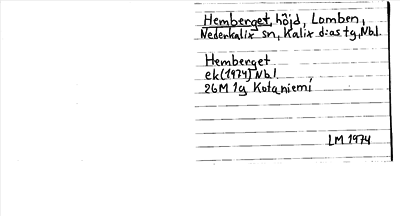 Hemberget, höjd, Lomben,
Nederkalix sn, Kalix d:as tg, Nbl.
Hemberget
ek (1974) Nbl.
26M 1g Kotaniemi
LM 1974